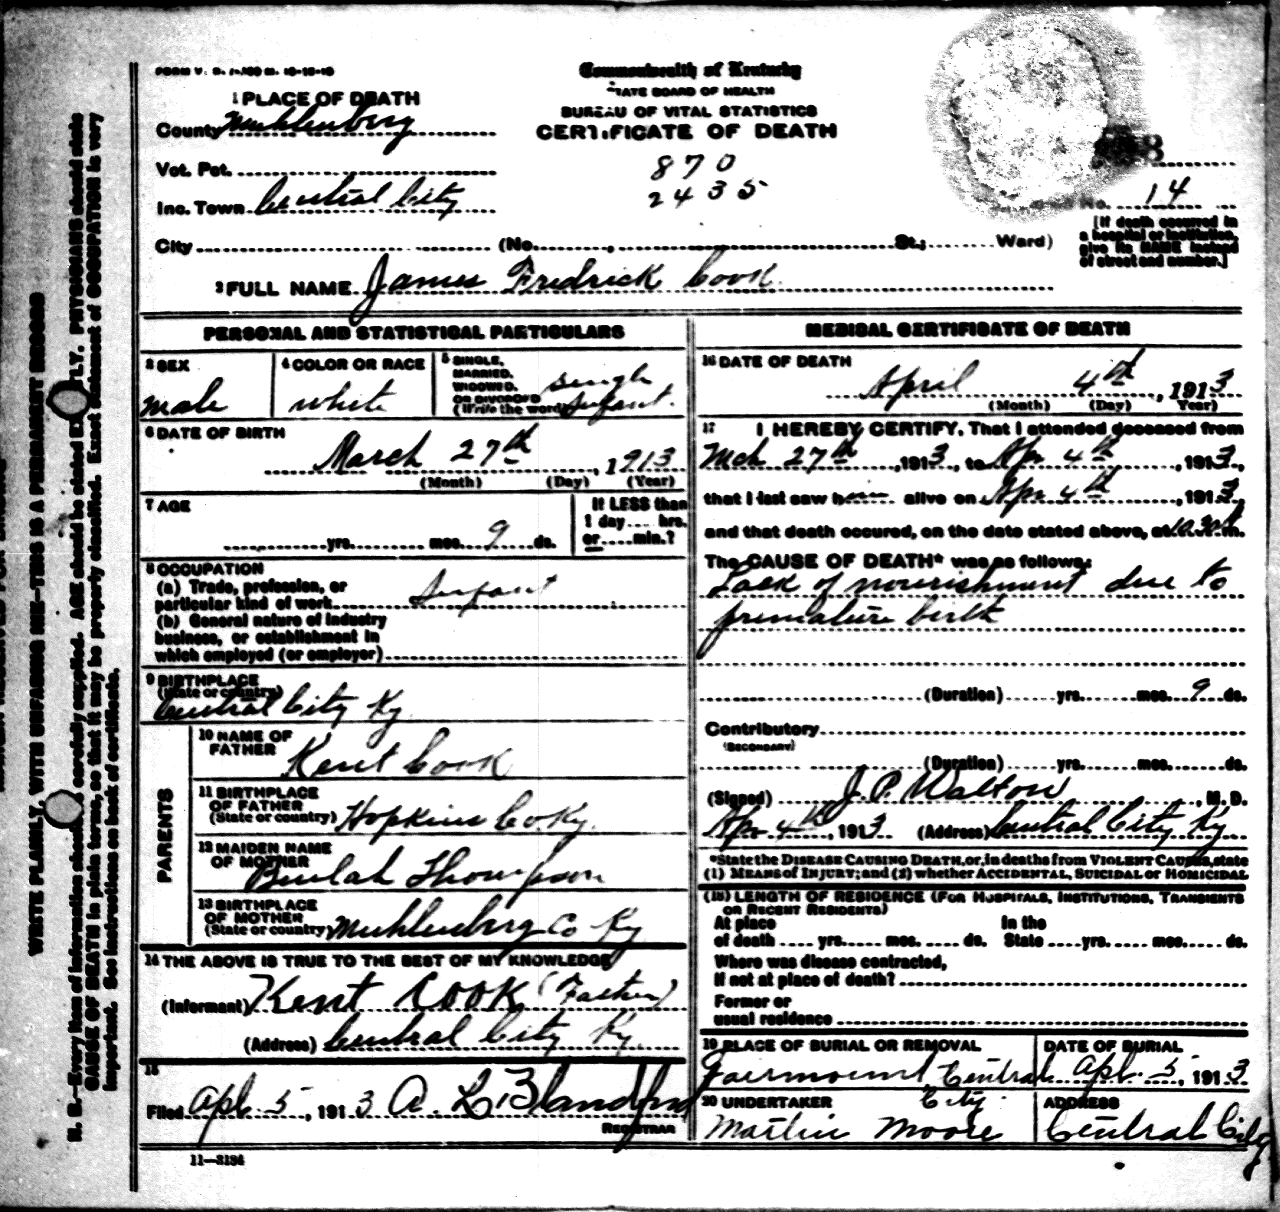 Commonwealth of Kentucky
STATE BOARD OF HEALTH
BUREAU OF VITAL STATISTICS
CERTIFICATE OF DEATH
870
2435
1 PLACE OF DEATH
County Muhlenberg
Vot. Pct.
Inc. Town Central City
City (No. , St.; Ward)
No. 14
[If death occurred in
a hospital or institution,
give its NAME instead
of street and number.]
2 FULL NAME James Fredrick Cook
PERSONAL AND STATISTICAL PARTICULARS
3 SEX
male
4 COLOR OR RACE
white
5 SINGLE,
MARRIED,
WIDOWED,
OR DIVORCED
(Write the word)
Single
Infant.
6 DATE OF BIRTH
March 27th, 1913
(Month) (Day) (Year)
7 AGE
yrs. mos. 9 ds.
If LESS than
1 day .... hrs.
or .... min.?
8 OCCUPATION
(a) Trade, profession, or
particular kind of work Infant
(b) General nature of industry
business, or establishment in
which employed (or employer)
9 BIRTHPLACE
(State or country)
Central City Ky.
PARENTS
10 NAME OF
FATHER Kent Cook
11 BIRTHPLACE
OF FATHER
(State or country) Hopkins Co. Ky.
12 MAIDEN NAME
OF MOTHER Beulah Thompson
13 BIRTHPLACE
OF MOTHER
(State or country) Muhlenberg Co Ky
14 THE ABOVE IS TRUE TO THE BEST OF MY KNOWLEDGE
(Informant) Kent Cook (Father)
(Address) Central City Ky.
15
Filed Apl. 5, 1913 A. L. Blandford
REGISTRAR
11—3184
MEDICAL CERTIFICATE OF DEATH
16 DATE OF DEATH
April 4th, 1913
(Month) (Day) Year)
17 I HEREBY CERTIFY, That I attended deceased from
Mch 27th, 1913, to Apr 4th, 1913,
that I last saw him alive on Apr 4th, 1913,
and that death occured, on the date stated above, at 10.30 A.m.
The CAUSE OF DEATH* was as follows:
Lack of nourishment due to
premature birth
(Duration) yrs. mos. 9 ds.
Contributory
(SECONDARY)
(Duration) yrs. mos. ds.
(Signed) J. P. Walton, M. D.
Apr 4th, 1913 (Address) Central City Ky
*State the DISEASE CAUSING DEATH, or, in deaths from VIOLENT CAUSES, state
(1) MEANS of INJURY; and (2) whether ACCIDENTAL, SUICIDAL or HOMICIDAL
(18) LENGTH OF RESIDENCE (FOR HOSPITALS, INSTITUTIONS, TRANSIENTS
OR RECENT RESIDENTS)
At place In the
of death .... yrs. .... mos. .... ds. State .... yrs. .... mos. .... ds.
Where was disease contracted,
If not at place of death?
Former or
usual residence
19 PLACE OF BURIAL OR REMOVAL
Fairmount Central
City
DATE OF BURIAL
Apl. 5, 1913
20 UNDERTAKER
Martin Moore
ADDRESS
Central City
WRITE PLAINLY, WITH UNFADING INK—THIS IS A PERMANENT RECORD
N. B.—Every item of information should be carefully supplied. AGE should be stated EXACTLY. PHYSICIANS should state
CAUSE OF DEATH in plain terms, so that it may be properly classified. Exact statement of OCCUPATION is very
important. See instructions on back of certificate.